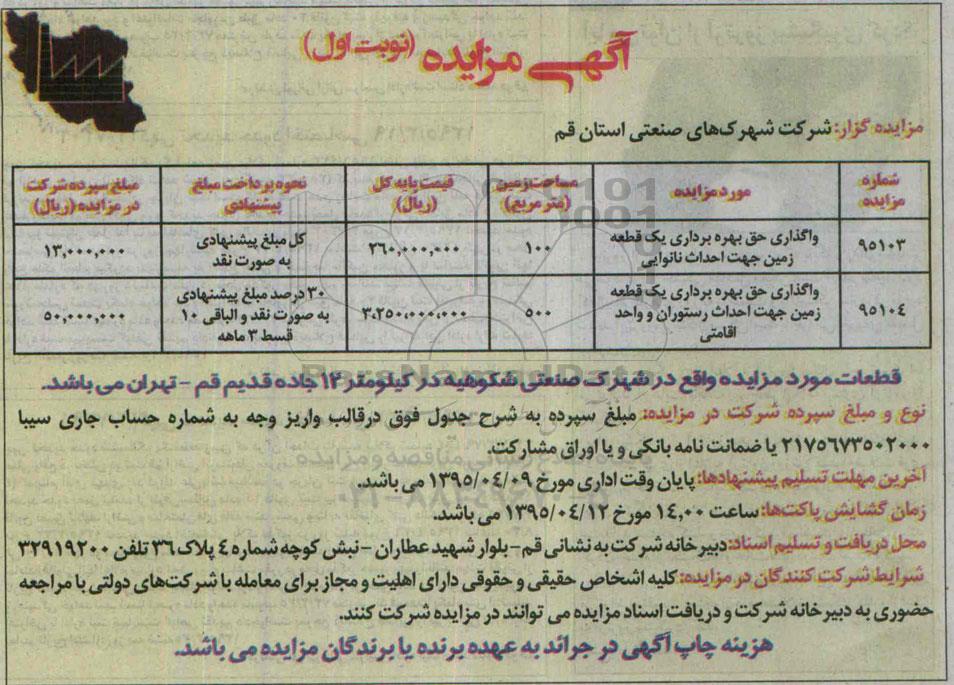 آگهی مزایده (نوبت اول)
مزایده گزار: شرکت شهرک‌های صنعتی استان قم
شماره مزایده
مورد مزایده
مساحت زمین (متر مربع)
قیمت پایه کل (ریال)
نحوه پرداخت مبلغ پیشنهادی
مبلغ سپرده شرکت در مزایده (ریال)
۹۵۱۰۳
واگذاری حق بهره برداری یک قطعه
زمین جهت احداث نانوایی
۱۰۰
۲۶۰,۰۰۰,۰۰۰
کل مبلغ پیشنهادی
به صورت نقد
۱۳,۰۰۰,۰۰۰
۹۵۱۰٤
واگذاری حق بهره برداری یک قطعه
زمین جهت احداث رستوران و واحد
اقامتی
۵۰۰
۳،۲۵۰،۰۰۰,۰۰۰
۳۰ درصد مبلغ پیشنهادی
به صورت نقد و الباقی ۱۰
قسط ۳ ماهه
۵۰,۰۰۰,۰۰۰
قطعات مورد مزایده واقع در شهرک صنعتی شکوهیه در کیلومتر ۱۲ جاده قدیم قم - تهران می باشد.
نوع و مبلغ سپرده شرکت در مزایده: مبلغ سپرده به شرح جدول فوق در قالب واریز وجه به شماره حساب جاری سیبا
۲۱۷۵۶۷۳۵۰۲۰۰۰ یا ضمانت نامه بانکی و یا اوراق مشارکت.
آخرین مهلت تسلیم پیشنهادها: پایان وقت اداری مورخ ۱۳۹۵/۰٤/۰۹ می باشد.
زمان گشایش پاکت‌ها: ساعت ۱٤,۰۰ مورخ ۱۳۹۵/۰٤/۱۲ می باشد.
محل دریافت و تسلیم اسناد: دبیرخانه شرکت به نشانی قم - بلوار شهید عطاران - نبش کوچه شماره ٤ پلاک ۳۶ تلفن ۳۲۹۱۹۲۰۰
شرایط شرکت کنندگان در مزایده: کلیه اشخاص حقیقی و حقوقی دارای اهلیت و مجاز برای معامله با شرکت‌های دولتی با مراجعه
حضوری به دبیر خانه شرکت و دریافت اسناد مزایده می توانند در مزایده شرکت کنند.
هزینه چاپ آگهی در جرائد به عهده برنده یا برندگان مزایده می باشد.